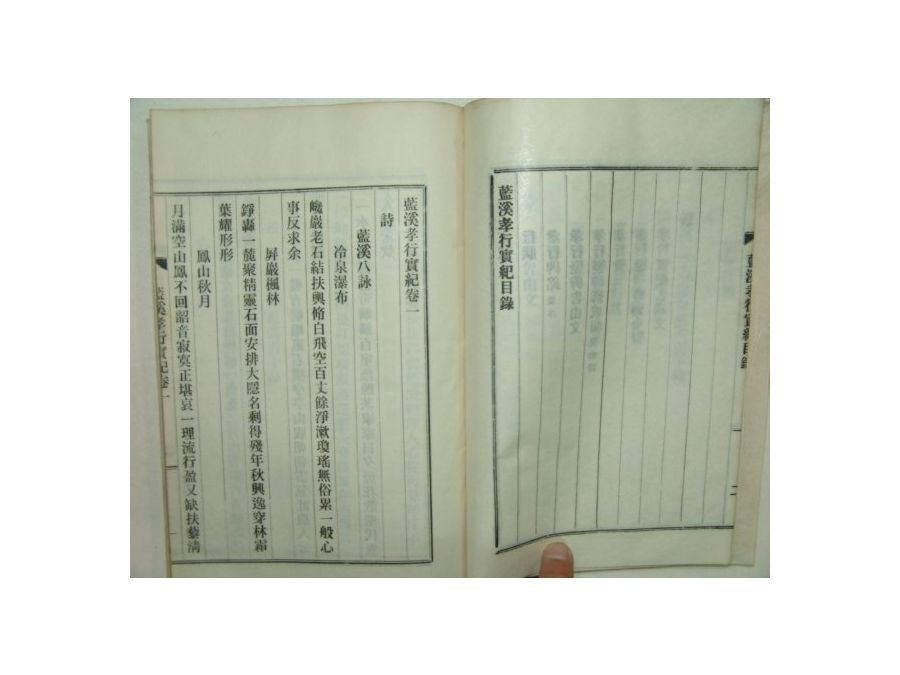 藍溪孝行實紀目錄
藍溪孝行實紀目錄
二
藍溪孝行實紀卷一
詩
藍溪八詠
冷泉瀑布
巉巖老石結扶輿脩白飛空百丈餘淨漱瓊瑤無俗累一般心
事反求余
屛巖楓林
錚轟一麓聚精靈石面安排大隱名剩得殘年秋興逸穿林霜
葉耀形形
鳳山秋月
月滿空山鳳不回韶音寂寞正堪哀一理流行盈又缺扶藜淸
藍溪孝行實紀卷一